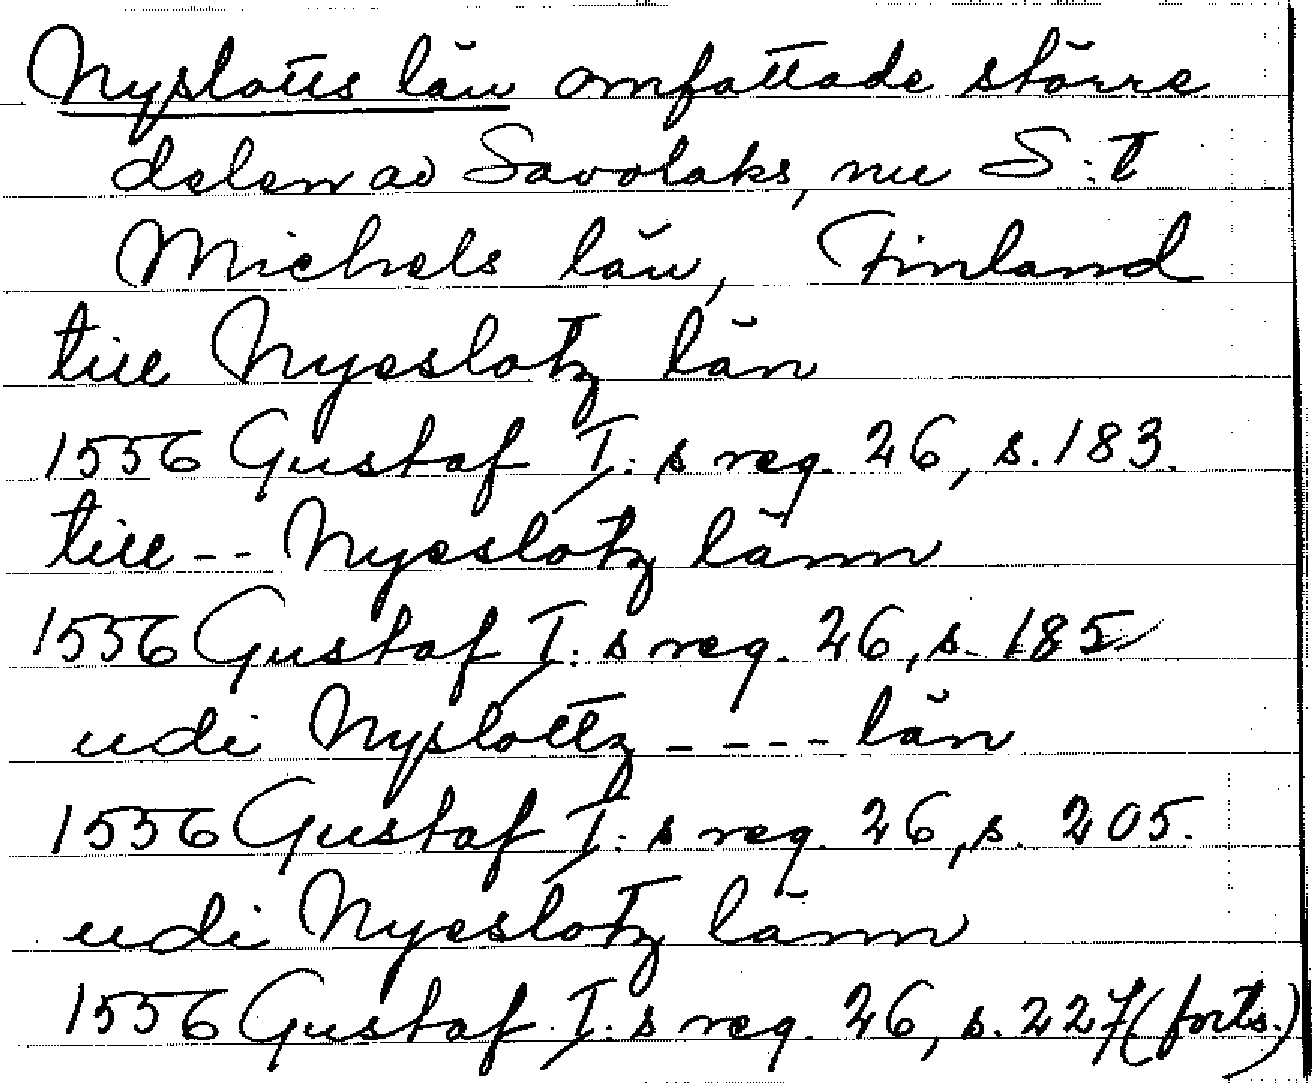 Nyslotts län omfattade större
delen av Savolaks, nu S:t
Michels län, Finland
till Nyeslotz län
1556 Gustaf I:s reg. 26, s. 183.
till -- Nyeslotz länn
1556 Gustaf I:s reg. 26, s. 185
udi Nyslottz ---- län
1556 Gustaf I:s reg. 26, s. 205.
udi Nyeslotz länn
1556 Gustaf I:s reg. 26, s. 227 (forts.)